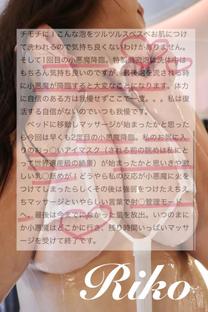 チモチに！こんな泡をツルツルスベスベお肌につけ
て洗われるので気持ち良くないわけがありません。
そして1回目の小悪魔降臨。特製
もちろん気持ち良いのですが、最後泡を流される時
に小悪魔が降臨すると大変なことになります。体力
に自信のある方は我慢せずここで一度。。。私は復
活する自信がないのでいつも我慢です。
ベッドに移動しマッサージが始まったかと思った
ら今回は早くも2度目の小悪魔降臨。私のお尻に入
りのおっ〇いアイマスク（される前の眺めは私にと
って世界遺産級の絶景）が始まったかと思いきや激
しい乳〇舐めが！どうやら私の反応が小悪魔に火を
つけてしまったらしくその後は備長をつけたえちえ
ちマッサージといやらしい言葉で射〇管理モード
へ。最後は今までになかった量を放出。いつのまに
か小悪魔はどこかに行き、残り時間いっぱいマッサ
ージを受けて終了です。
Riko